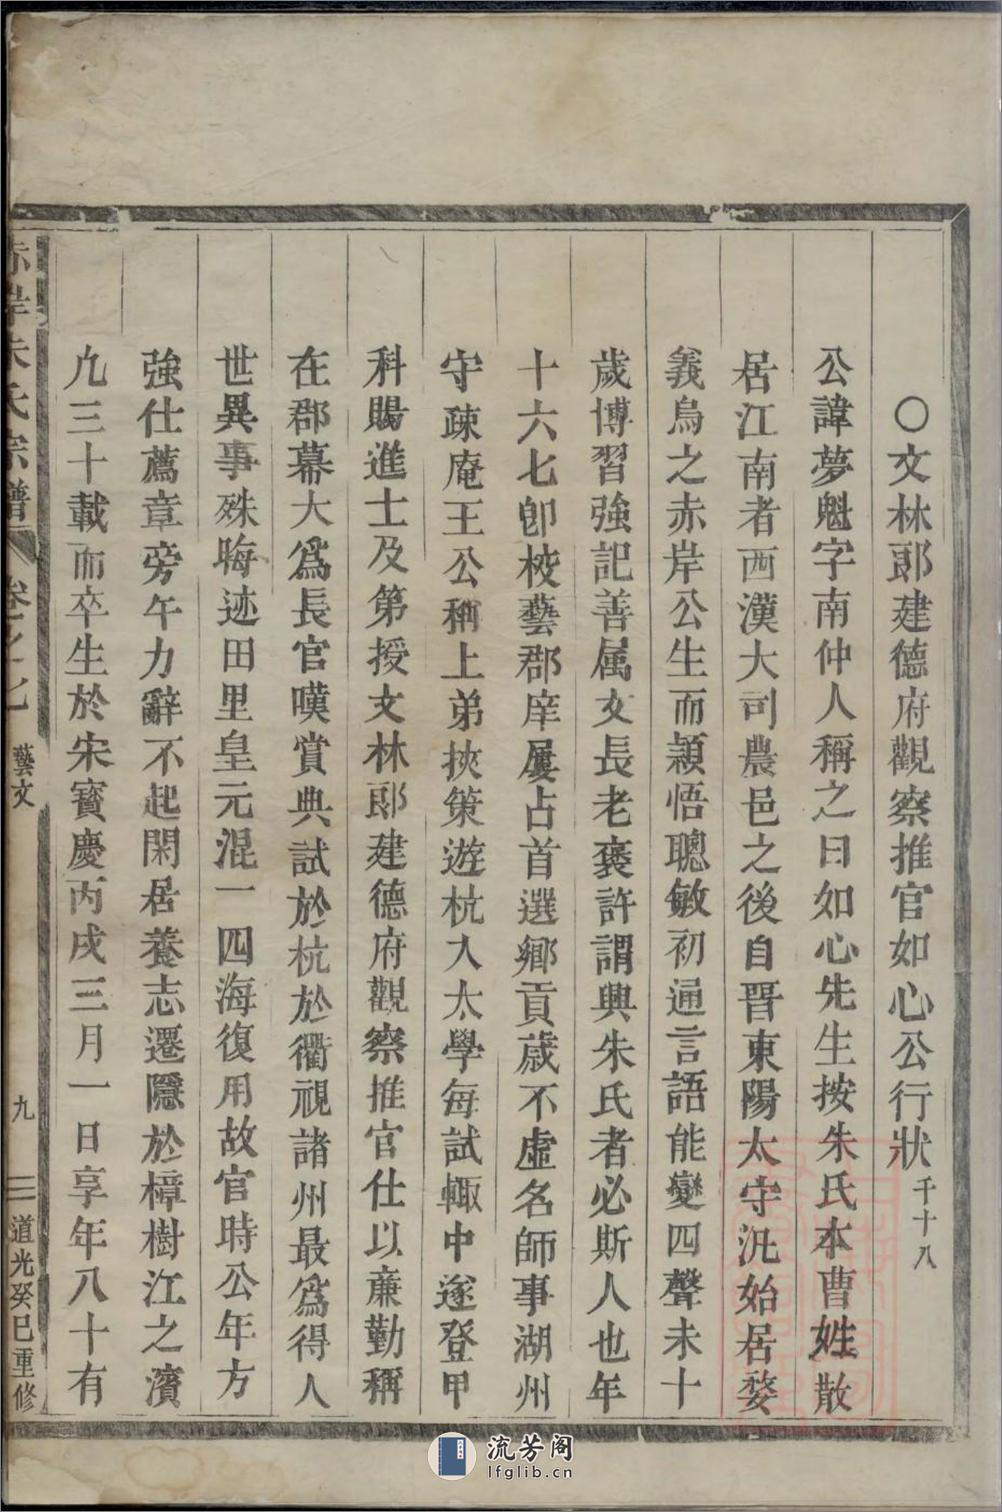 ○文林郎建德府觀察推官如心公行狀千十八
公諱夢魁字南仲人稱之曰如心先生按朱氏本曹姓散
居江南者西漢大司農邑之後自晋東陽太守汎始居婺
義烏之赤岸公生而穎悟聰敏初通言語能變四聲未十
歲博習強記善属文長老褒許謂興朱氏者必斯人也年
十六七卽校藝郡庠屢占首選鄉貢歲不虛名師事湖州
守疎庵王公稱上弟挾策遊杭入太學每試輙中遂登甲
科賜進士及第授文林郎建德府觀察推官仕以亷勤稱
在郡幕大爲長官嘆賞典試於杭於衢視諸州最爲得人
世異事殊晦迹田里皇元混一四海復用故官時公年方
強仕薦章旁午力辭不起閑居養志遷隱於樟樹江之濱
九三十載而卒生於宋寶慶丙戌三月一日享年八十有
赤岸朱氏宗譜 卷之七 藝文 九 道光癸巳重修
流芳阁
lfglib.cn